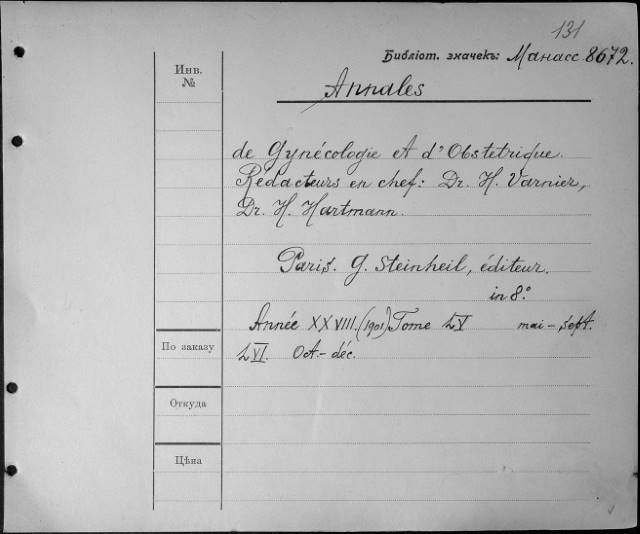 131
Библіот. значекъ: Манасс 8672.
Инв. №
Annales
de Gynécologie et d'Obstetrique.
Rédacteurs en chef: Dr. H. Varnier,
Dr. H. Hartmann.
Paris. G. Steinheil, éditeur.
in 8.°
Année XXVIII. (1901) Tome LV mai – sept.
LVI. Oct.- déc.
По заказу
Откуда
Цѣна